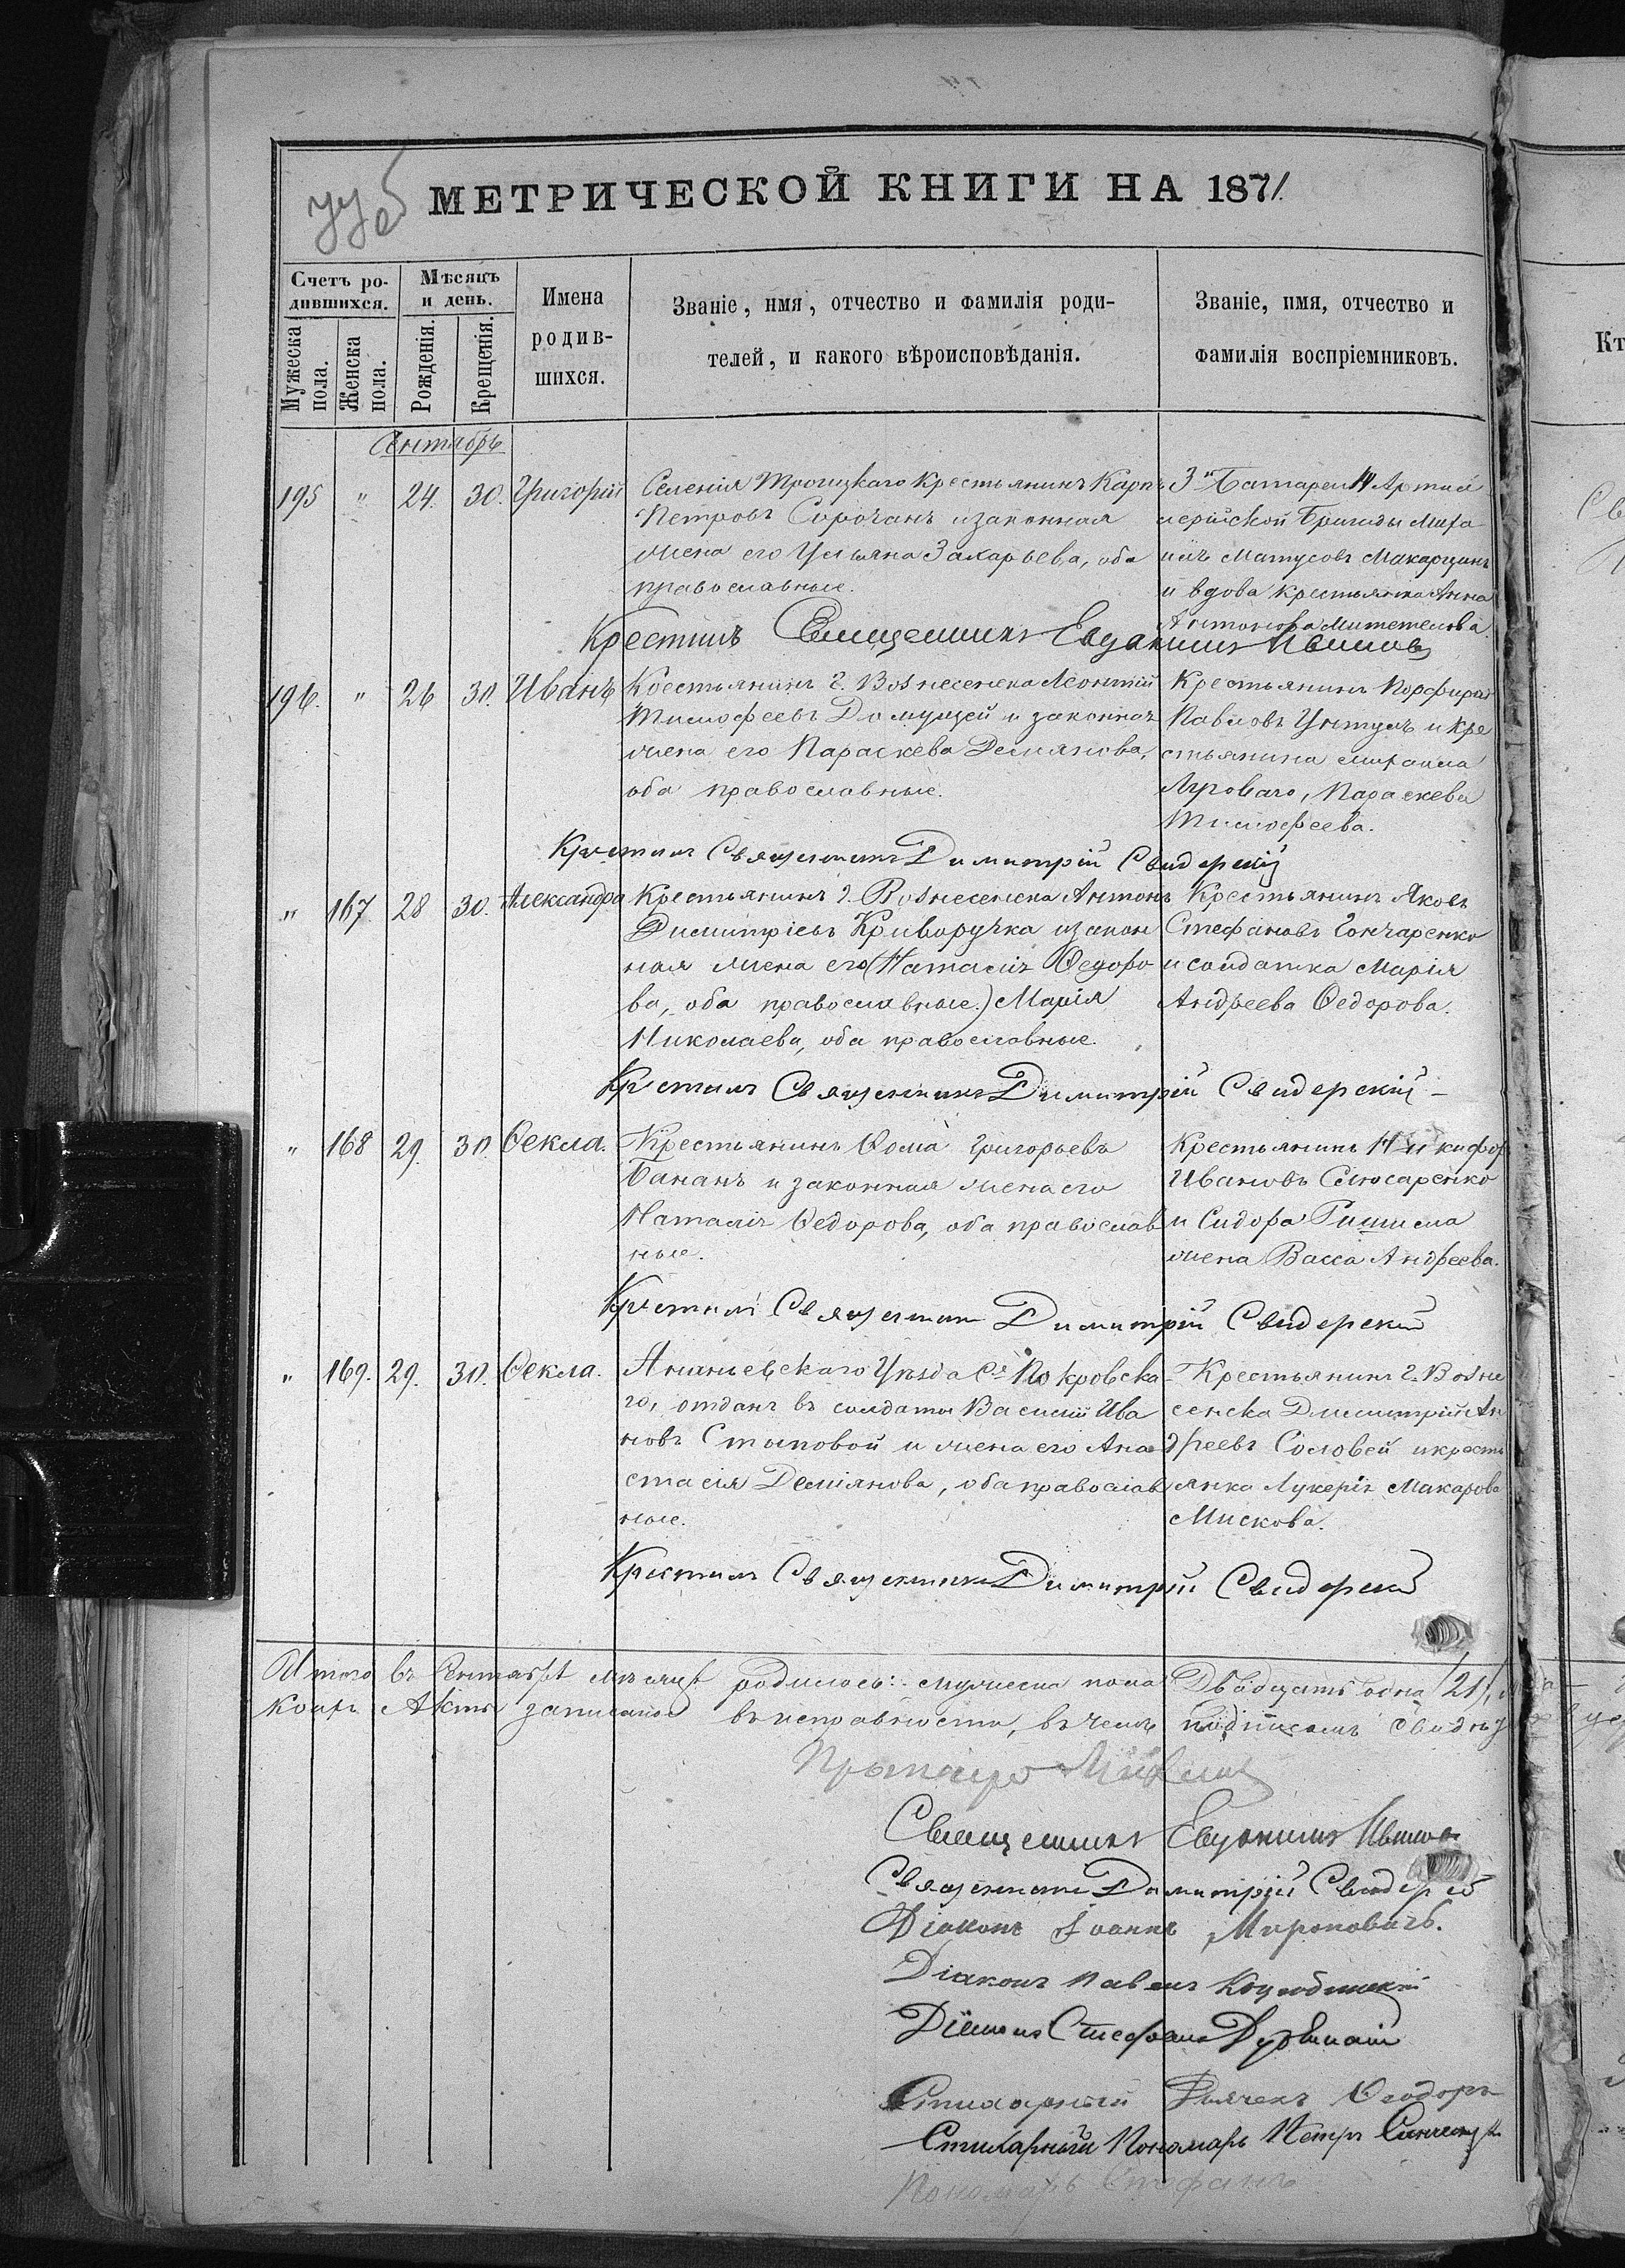 МЕТРИЧЕСКОЙ КНИГИ НА 1871.
Счетъ ро-
дившихся.
Мужеска пола.
Женска пола.
Мѣсяцъ
и день.
Рожденія.
Крещенія.
Имена
родив-
шихся.
Званіе, имя, отчество и фамилія роди-
телей, и какого вѣроисповѣданія.
Званіе, имя, отчество и
фамилія воспріемниковъ.
Сентябрь
195 " 24. 30. Григорій
Селенія Троицкаго крестьянинъ Карпъ
Петровъ Сорочанъ и законная
жена его Ульяна Захарьева, оба
православные.
3й Батареи 14 Артил
лерійской Бригады Миха
илъ Матусовъ
и вдова крестьянка Анна
Антонова
Крестилъ Священникъ
196. " 26 30. Иванъ
Крестьянинъ г. Вознесенска Леонтій
Тимофеевъ Домущей и законная
жена его Параскева Демянова,
оба православные.
Крестьянинъ Порфирій
Павловъ и кре
стьянина Михаила
Параскева
Тимофеева.
Крестилъ Священникъ Димитрій Свидерскій
" 167. 28 30. Александра
Крестьянинъ г. Вознесенска Антонъ
Димитріевъ Криворучка и закон
ная жена его (Наталія Ѳедоро
ва, оба православные.) Марія
Николаева, оба православные.
Крестьянинъ Яковъ
Стефановъ Гончаренко
и солдатка Марія
Андреева Ѳедорова.
Крестилъ Священникъ Димитрій Свидерскій
" 168 29. 30. Ѳекла.
Крестьянинъ Ѳома Григорьевъ
Бананъ и законная жена его
Наталія Ѳедорова, оба православ
ные.
Крестьянинъ Никифор
Ивановъ Слюсаренко
и Сидора
жена Васса Андреева.
Крестилъ Священникъ Димитрій Свидерскій
" 169. 29. 30. Ѳекла.
Ананьевскаго Уѣзда С. Покровска
го, отданъ въ солдаты Василій Ива
новъ Стыповой и жена его Ана
стасія Деміянова, оба православ
ные.
Крестьянинъ г. Возне
сенска Димитрій Ан
дреевъ Соловей и крестъ
янка Лукерія Макарова
Мискова.
Крестилъ Священникъ Димитрій Свидерскій
Итого въ Сентябрѣ мѣсяцѣ родилось: мужеска пола Двадцать одна (21),
Акты записаны въ исправности, въ чемъ
Священникъ
Священникъ Димитрій Свидерскій
Діаконъ Іоаннъ Мироновичъ.
Діаконъ Павелъ
Діаконъ Стефанъ
Стихарный Дьячекъ Ѳеодоръ
Стихарный Пономарь Петръ
Пономарь Стефанъ